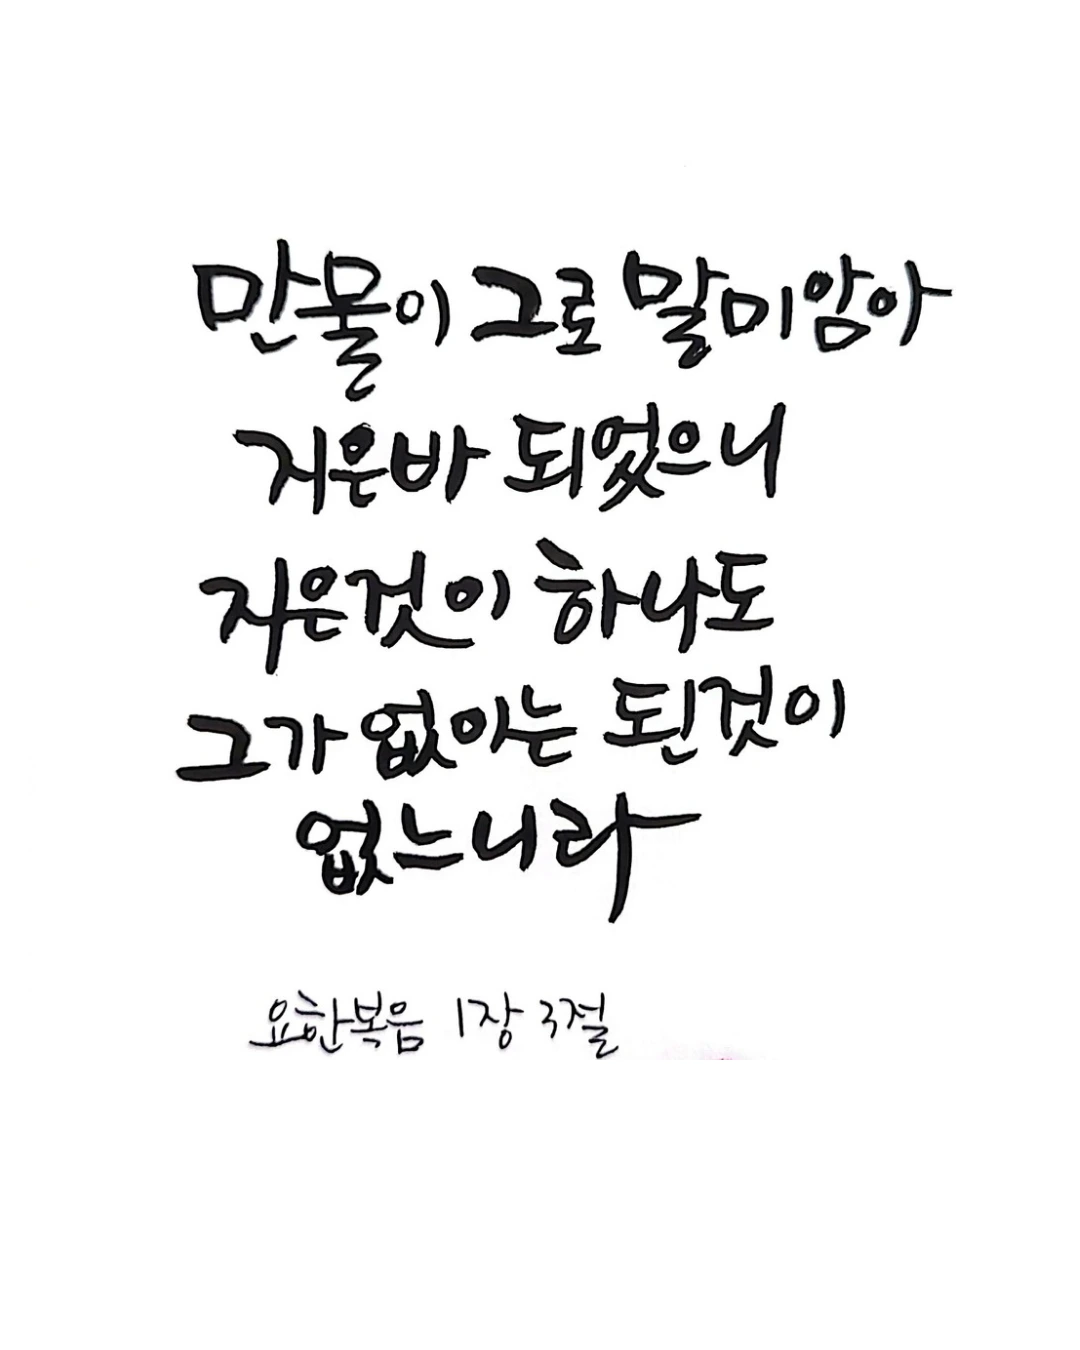 만물이 그로 말미암아
지은바 되었으니
지은것이 하나도
그가 없이는 된것이
없느니라
요한복음 1장 3절